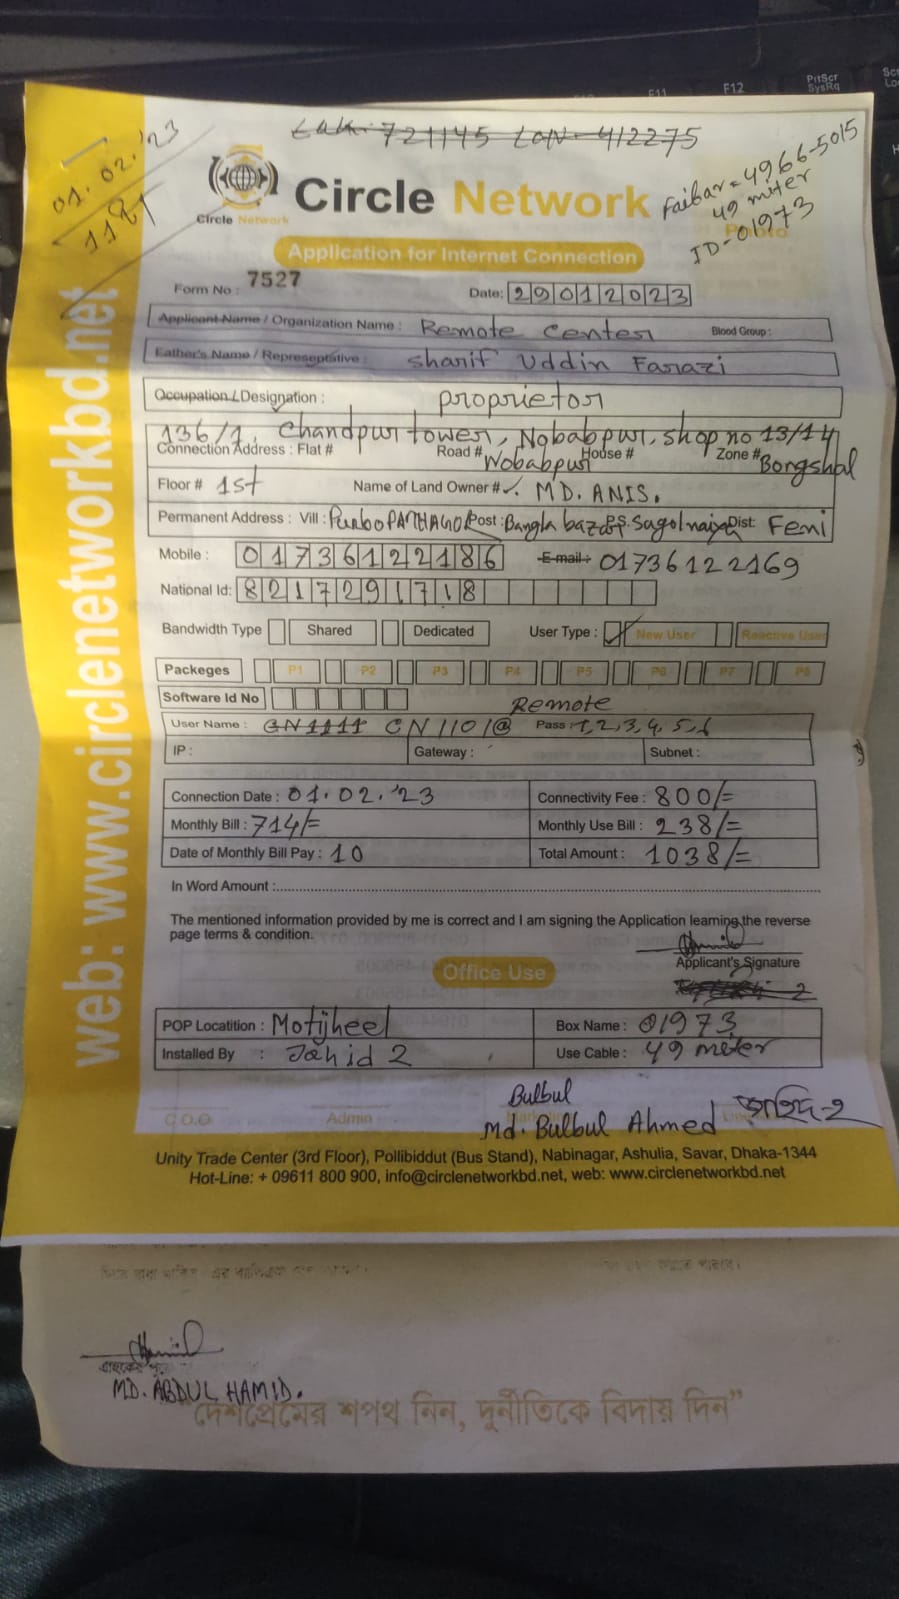 Lak: 721145 Lon- 412275
01.02.'23
1181
Faibar = 4966-5015
49 miter
ID-01973
Circle Network
Circle Network
Application for Internet Connection
Form No : 7527
Date: 29012023
Applicant Name / Organization Name : Remote Center Blood Group :
Father's Name / Representative : Sharif Uddin Farazi
Occupation / Designation : proprietor
136/1, Chandpur tower, Nobabpur, shop no 13/14
Connection Address : Flat # Road # Wobabpur House # Zone # Bongshal
Floor # 1st Name of Land Owner # ✓. MD. ANIS.
Permanent Address : Vill : Post : Bangla bazar P.S. Sagolnaiya Dist: Feni
Mobile : 01736122186 E-mail : 01736122169
National Id: 8217291718
Bandwidth Type Shared Dedicated User Type : ✓ New User Reactive User
Packeges P1 P2 P3 P4 P5 P6 P7 P8
Software Id No
Remote
User Name : CN1111 CN1101@ Pass : 1,2,3,4,5,6
IP : Gateway : Subnet :
Connection Date : 01.02.'23 Connectivity Fee : 800/=
Monthly Bill : 714/= Monthly Use Bill : 238/=
Date of Monthly Bill Pay : 10 Total Amount : 1038/=
In Word Amount :
The mentioned information provided by me is correct and I am signing the Application learning the reverse
page terms & condition.
Applicant's Signature
Office Use
POP Locatition : Motijheel Box Name : 01973
Installed By : Jahid 2 Use Cable : 49 meter
Bulbul
C.O.O Admin Md. Bulbul Ahmed জাহিদ-2
Unity Trade Center (3rd Floor), Pollibiddut (Bus Stand), Nabinagar, Ashulia, Savar, Dhaka-1344
Hot-Line: + 09611 800 900, info@circlenetworkbd.net, web: www.circlenetworkbd.net
web: www.circlenetworkbd.net
MD. ABDUL HAMID.
“দেশপ্রেমের শপথ নিন, দুর্নীতিকে বিদায় দিন”